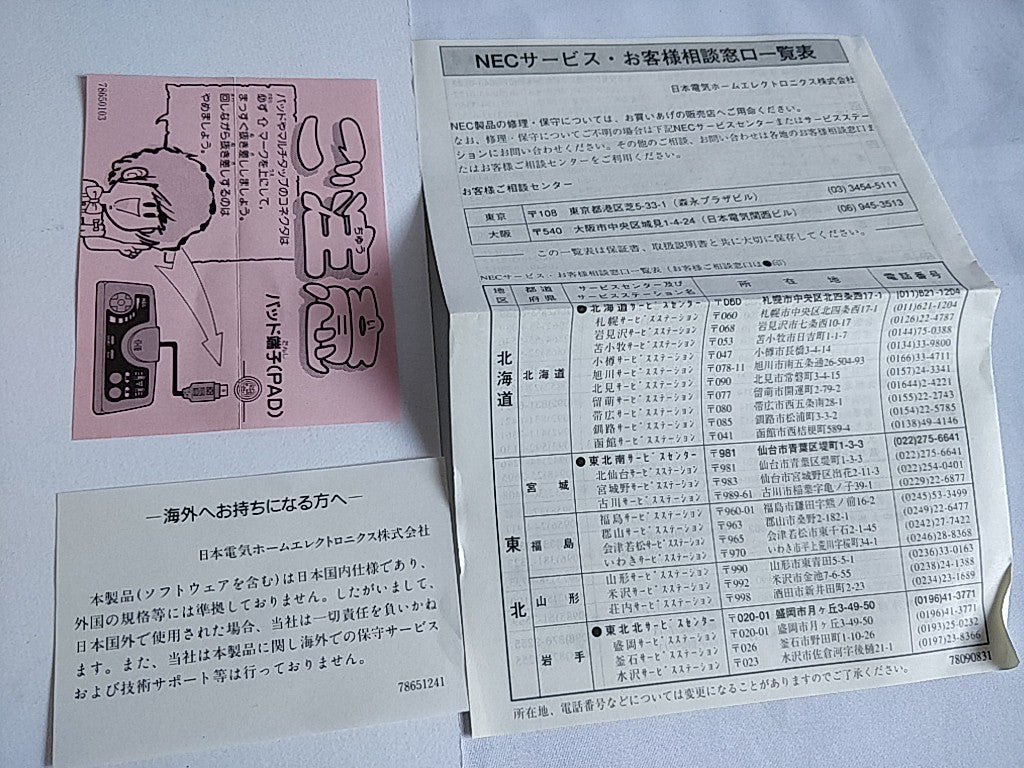 ご注意
ちゅう
パッド端子(PAD)
たんし
パッドやマルチタップのコネクタは
必ず⇧マークを上にして、
まっすぐ抜き差ししましょう。
回しながら抜き差しするのは
やめましょう。
78650103
—海外へお持ちになる方へ—
日本電気ホームエレクトロニクス株式会社
本製品(ソフトウェアを含む)は日本国内仕様であり、
外国の規格等には準拠しておりません。したがいまして、
日本国外で使用された場合、当社は一切責任を負いかね
ます。また、当社は本製品に関し海外での保守サービス
および技術サポート等は行っておりません。
78651241
NECサービス・お客様相談窓口一覧表
日本電気ホームエレクトロニクス株式会社
NEC製品の修理・保守については、お買いあげの販売店へご用命ください。
なお、修理・保守についてご不明の場合は下記NECサービスセンターまたはサービスステー
ションにお問い合わせください。その他のご相談、お問い合わせは各地のお客様相談窓口ま
たはお客様ご相談センターをご利用ください。
お客様ご相談センター
東京 〒108 東京都港区芝5-33-1(森永プラザビル) (03) 3454-5111
大阪 〒540 大阪市中央区城見1-4-24(日本電気関西ビル) (06) 945-3513
この一覧表は保証書、取扱説明書と共に大切に保存してください。
NECサービス・お客様相談窓口一覧表(お客様ご相談窓口は●印)
地区 都道府県 サービスセンター及びサービスステーション名 所在地 電話番号
北海道 北海道 ●北海道サービスセンター 〒060 札幌市中央区北四条西17-1 (011)621-1204
札幌サービスステーション 〒060 札幌市中央区北四条西17-1 (011)621-1204
岩見沢サービスステーション 〒068 岩見沢市七条西10-17 (0126)22-4787
苫小牧サービスステーション 〒053 苫小牧市日吉町1-1-7 (0144)75-0388
小樽サービスステーション 〒047 小樽市長橋3-4-14 (0134)33-9800
旭川サービスステーション 〒078-11 旭川市南五条通26-504-93 (0166)33-4711
北見サービスステーション 〒090 北見市常盤町3-4-15 (0157)24-3341
留萌サービスステーション 〒077 留萌市開運町2-79-2 (01644)2-4221
帯広サービスステーション 〒080 帯広市西五条南28-1 (0155)22-2743
釧路サービスステーション 〒085 釧路市松浦町3-3-2 (0154)22-5785
函館サービスステーション 〒041 函館市西桔梗町589-4 (0138)49-4146
東北 宮城 ●東北南サービスセンター 〒981 仙台市青葉区堤町1-3-3 (022)275-6641
北仙台サービスステーション 〒981 仙台市青葉区堤町1-3-3 (022)275-6641
宮城野サービスステーション 〒983 仙台市宮城野区出花2-11-3 (022)254-0401
古川サービスステーション 〒989-61 古川市稲葉字亀ノ子39-1 (0229)22-6877
福島 福島サービスステーション 〒960-01 福島市鎌田字熊ノ前16-2 (0245)53-3499
郡山サービスステーション 〒963 郡山市桑野2-182-1 (0249)22-6477
会津サービスステーション 〒965 会津若松市東千石2-1-45 (0242)27-7422
いわきサービスステーション 〒970 いわき市平上荒川字桜町34-1 (0246)28-8368
山形 山形サービスステーション 〒990 山形市東青田5-5-1 (0236)33-0163
米沢サービスステーション 〒992 米沢市金池7-6-55 (0238)24-1388
荘内サービスステーション 〒998 酒田市新井田町2-23 (0234)23-1689
岩手 ●東北北サービスセンター 〒020-01 盛岡市月ヶ丘3-49-50 (0196)41-3771
盛岡サービスステーション 〒020-01 盛岡市月ヶ丘3-49-50 (0196)41-3771
釜石サービスステーション 〒026 釜石市野田町1-10-26 (0193)25-0232
水沢サービスステーション 〒023 水沢市佐倉河字後樋21-1 (0197)23-8366
所在地、電話番号などについては変更になることがありますのでご了承ください。
78090831